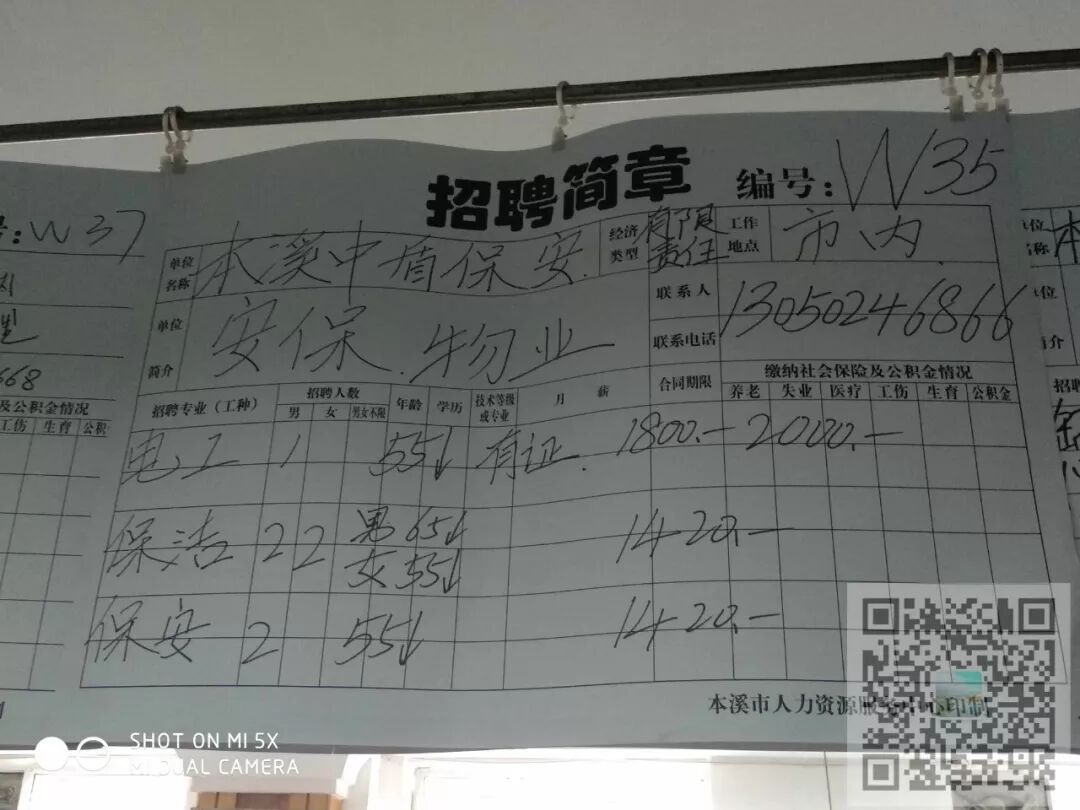 招聘简章 编号：W35
单位名称 本溪中盾保安 经济类型 有限责任 工作地点 市内
单位简介 安保、物业 联系人 联系电话 13050246866
招聘专业（工种） 招聘人数 男 女 男女不限 年龄 学历 技术等级或专业 月薪 合同期限 缴纳社会保险及公积金情况 养老 失业 医疗 工伤 生育 公积金
电工 1 55↓ 有证 1800.- 2000.-
保洁 2 2 男65↓ 女55↓ 1420.-
保安 2 55↓ 1420.-
本溪市人力资源服务中心印制
号：W37
668
及公积金情况
工伤 生育 公积
单位
名称 本
单位
简介
招聘
SHOT ON MI 5X
MI DUAL CAMERA